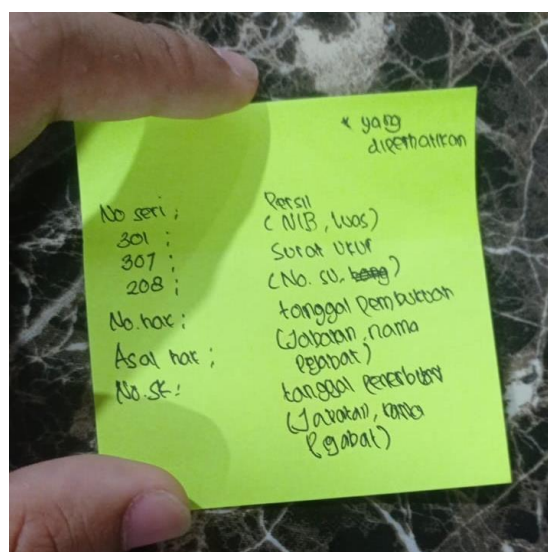 * yang
diperhatikan
No seri :
301 :
307 :
208 :
No. hak :
Asal hak :
No. SK :
Persil
(NIB, luas)
Surat Ukur
(No. SU, )
tanggal Pembukuan
(Jabatan, nama
Pejabat)
tanggal Penerbitan
(Jabatan, nama
Pejabat)